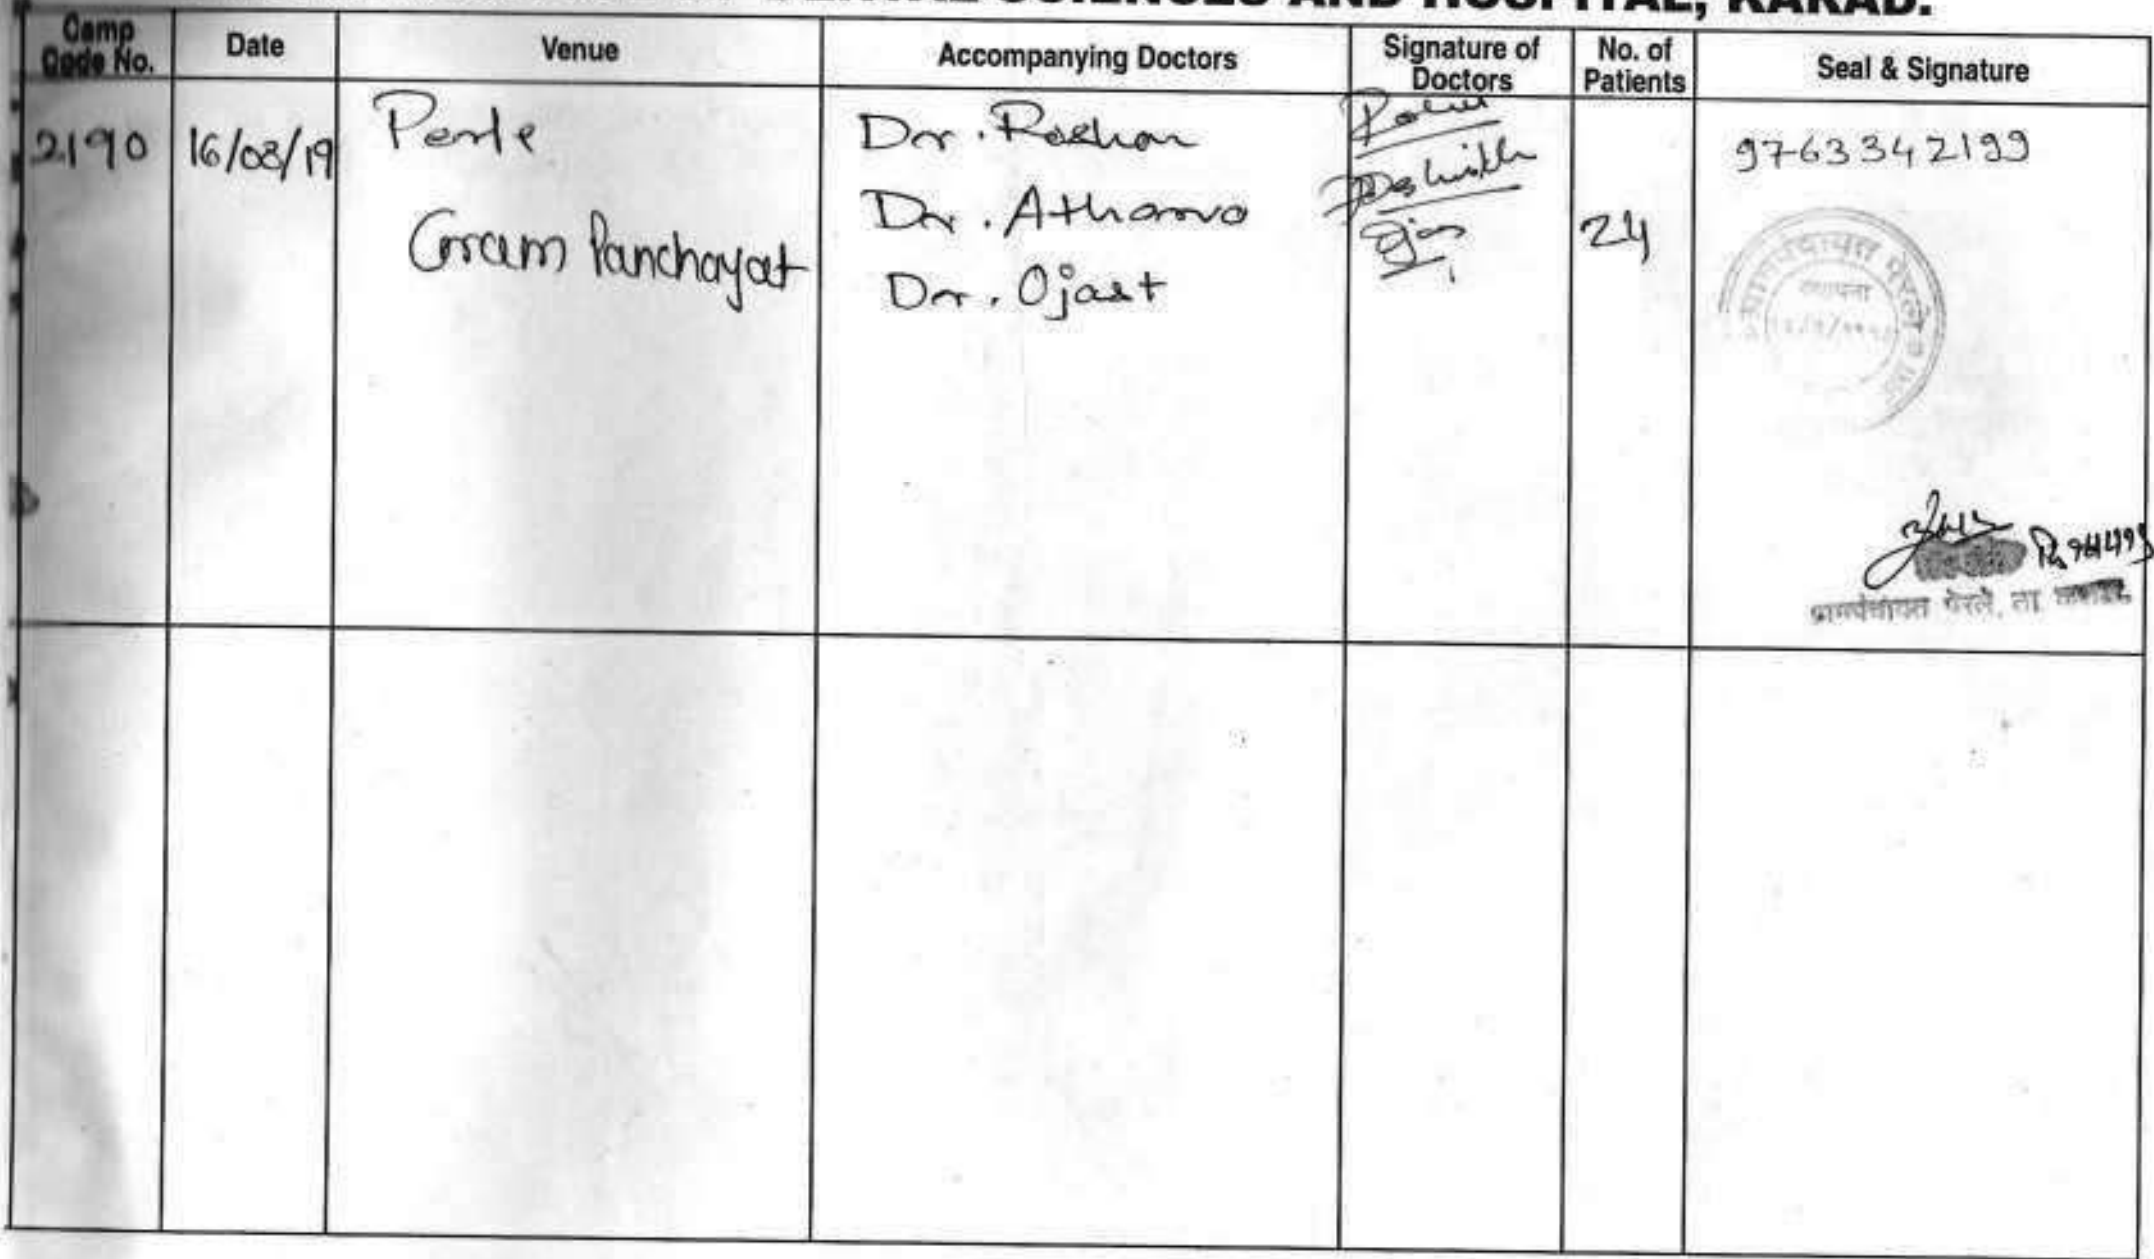 SCIENCES AND HOSPITAL, KARAD.
Camp Code No.
Date
Venue
Accompanying Doctors
Signature of Doctors
No. of Patients
Seal & Signature
2190
16/08/19
Perle
Gram Panchayat
Dr. Roshan
Dr. Atharva
Dr. Ojast
24
9763342199
ग्रामपंचायत पेरले
स्थापना
ग्रामपंचायत पेरले, ता कराड